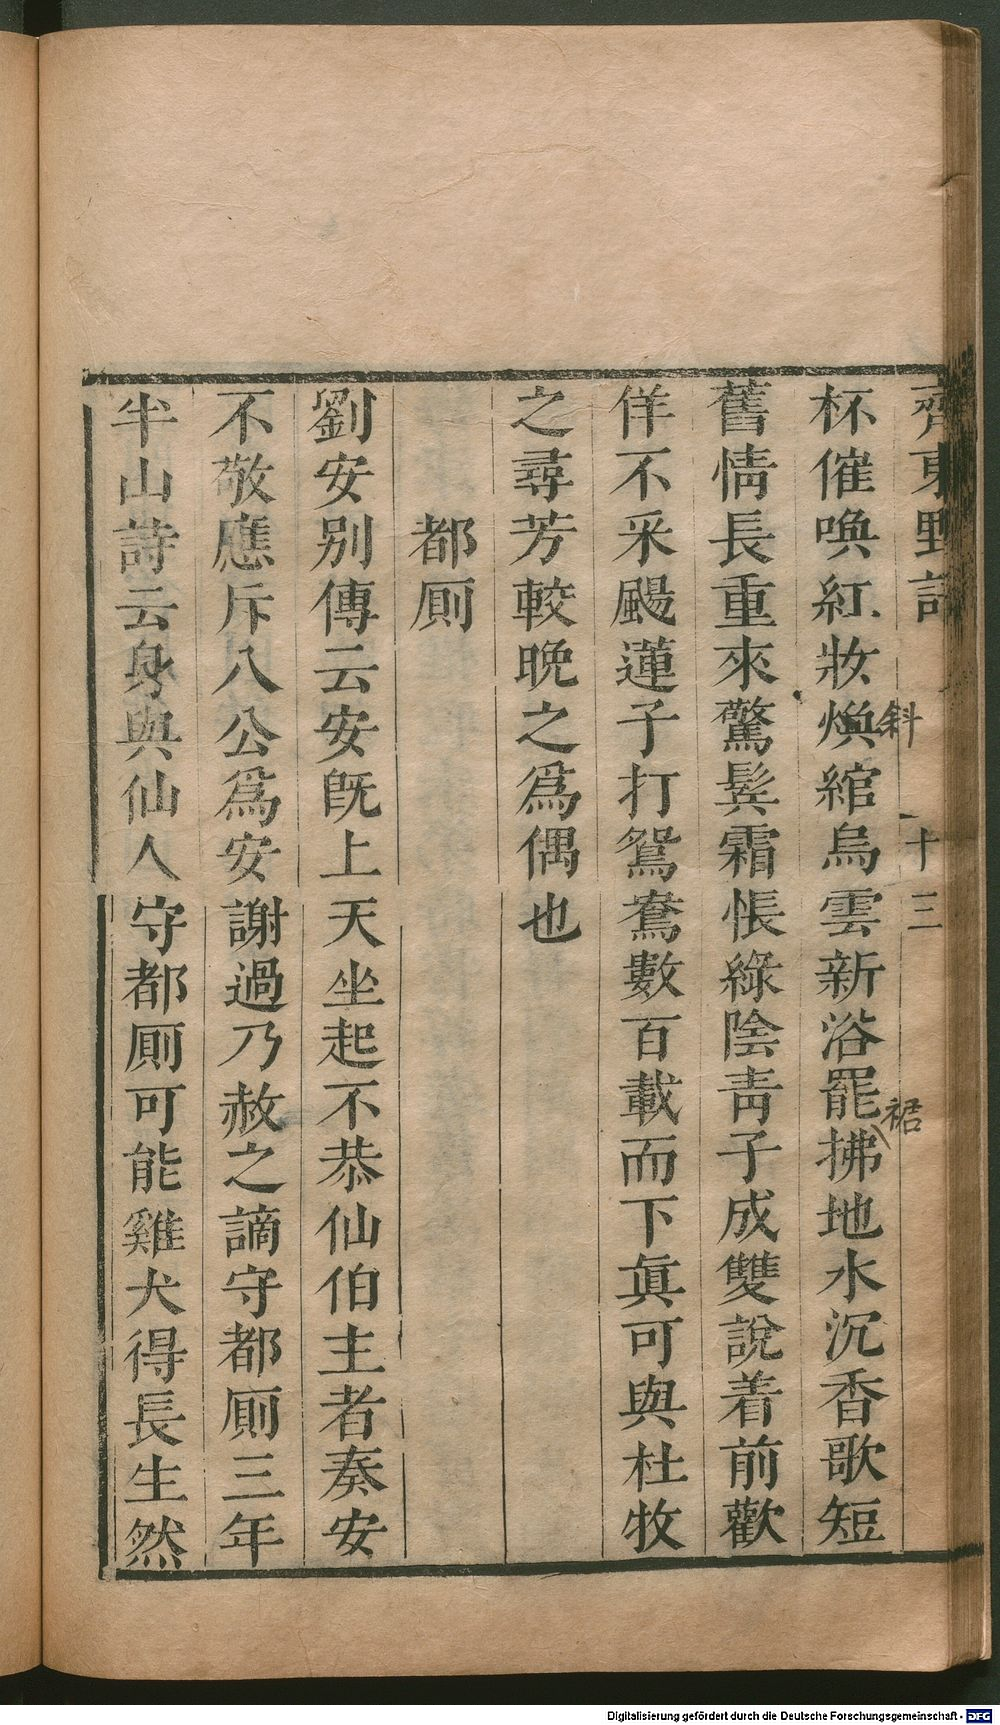 齊東野語 十三
斜
裾
杯催喚紅妝煥綰烏雲新浴罷拂地水沉香歌短
舊情長重來驚鬂霜悵綠陰青子成雙說着前歡
佯不采颺蓮子打鴛鴦數百載而下眞可與杜牧
之尋芳較晚之爲偶也
都厠
劉安別傳云安旣上天坐起不恭仙伯主者奏安
不敬應斥八公爲安謝過乃赦之謫守都厠三年
半山詩云身與仙人守都厠可能雞犬得長生然
Digitalisierung gefördert durch die Deutsche Forschungsgemeinschaft - DFG